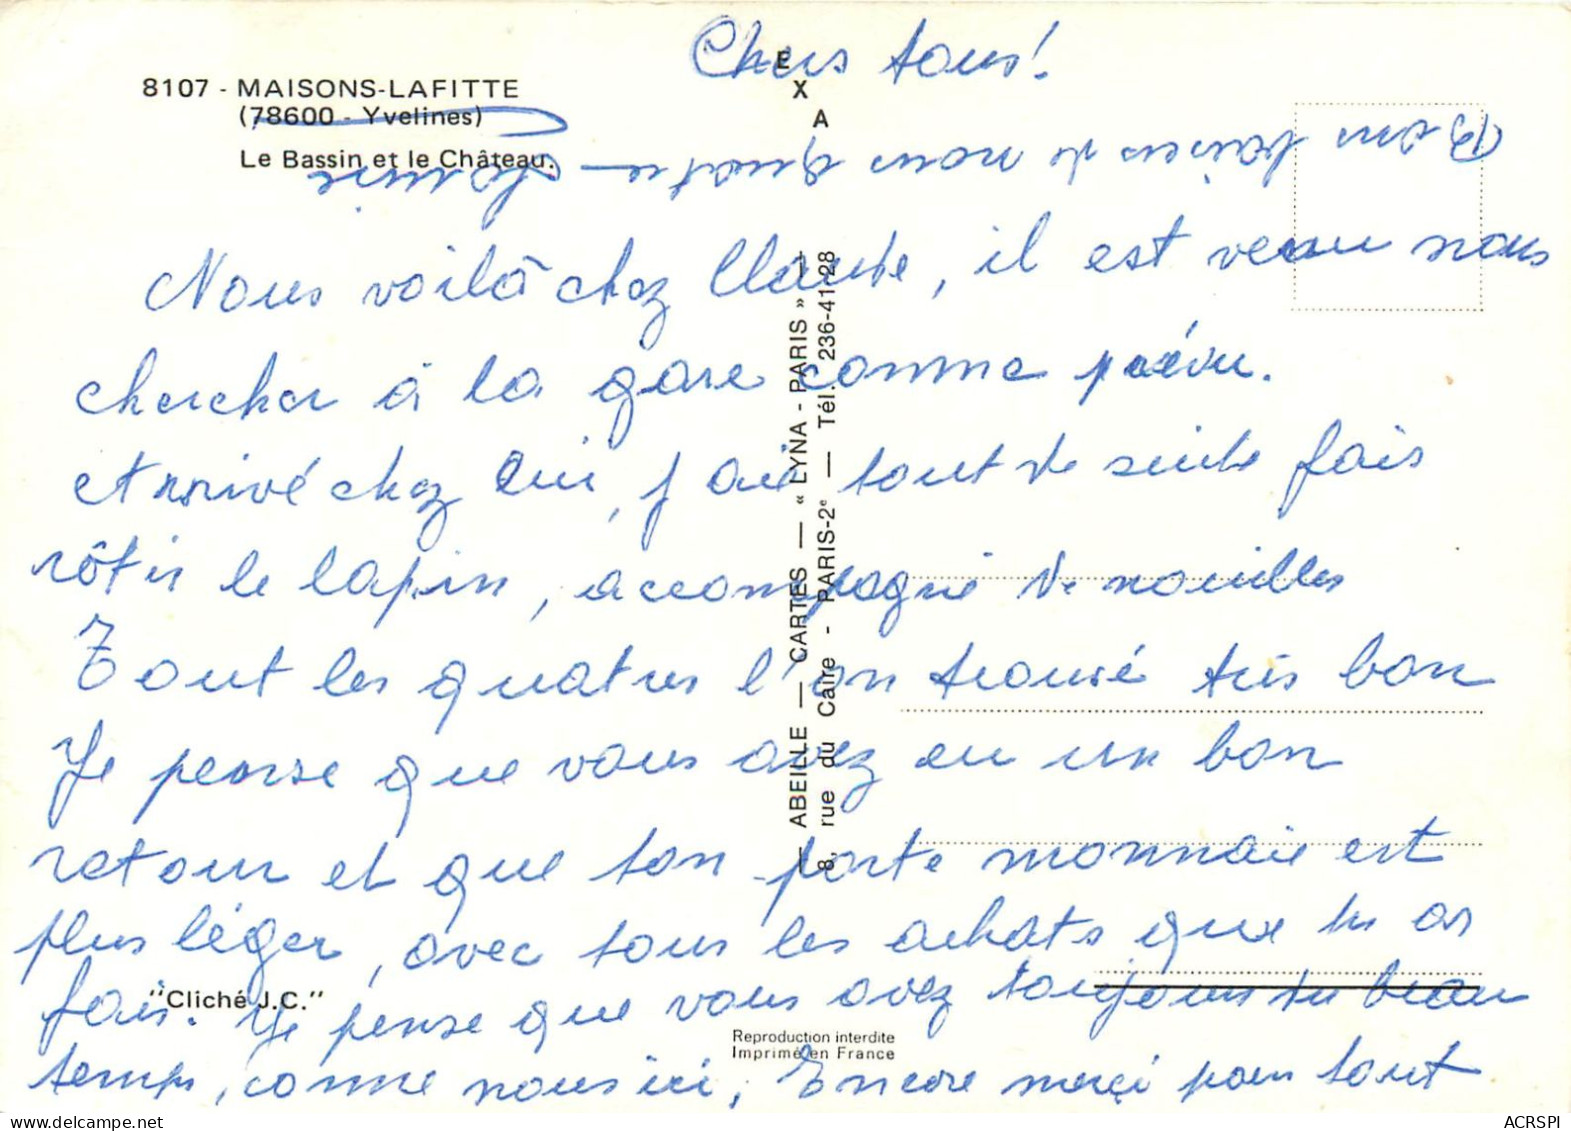 Chers tous!
8107 - MAISONS-LAFITTE
(78600 - Yvelines)
Le Bassin et le Château.
E
X
A
Nous voilà chez Claude, il est venu nous
chercher à la gare comme prévu.
et arrivé chez lui, j ai tout de suite fais
rôtir le lapin, accompagné de nouilles
Tout les quatres l'on trouvé très bon
Je pense que vous avez eu un bon
retour et que ton porte monnaie est
plus léger, avec tous les achats que tu as
fais. Je pense que vous avez toujours du beau
temps, comme nous ici, Encore merçi pour tout
Bons baisers de nous quatre —
— ABEILLE — CARTES — « LYNA - PARIS » —
8, rue du Caire - PARIS-2e — Tél. 236-41-28
"Cliché J.C."
Reproduction interdite
Imprimé en France
ACRSPI